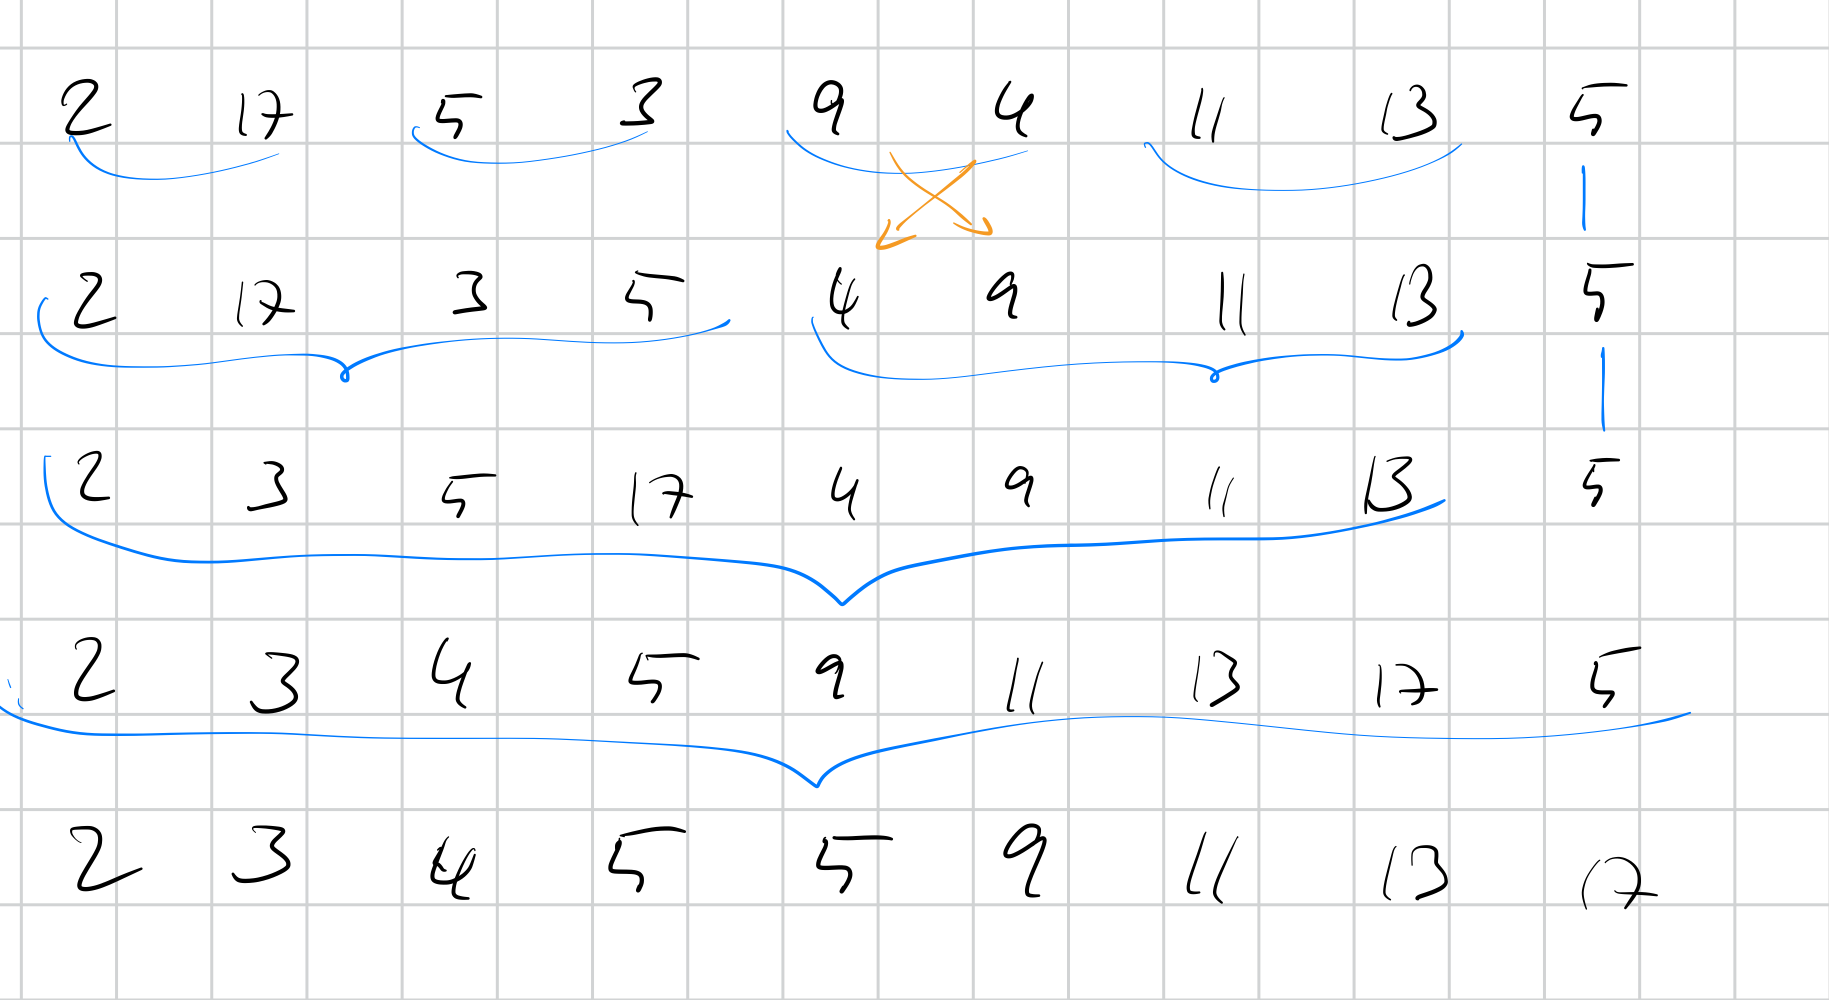 2 17 5 3 9 4 11 13 5
2 17 3 5 4 9 11 13 5
2 3 5 17 4 9 11 13 5
2 3 4 5 9 11 13 17 5
2 3 4 5 5 9 11 13 17